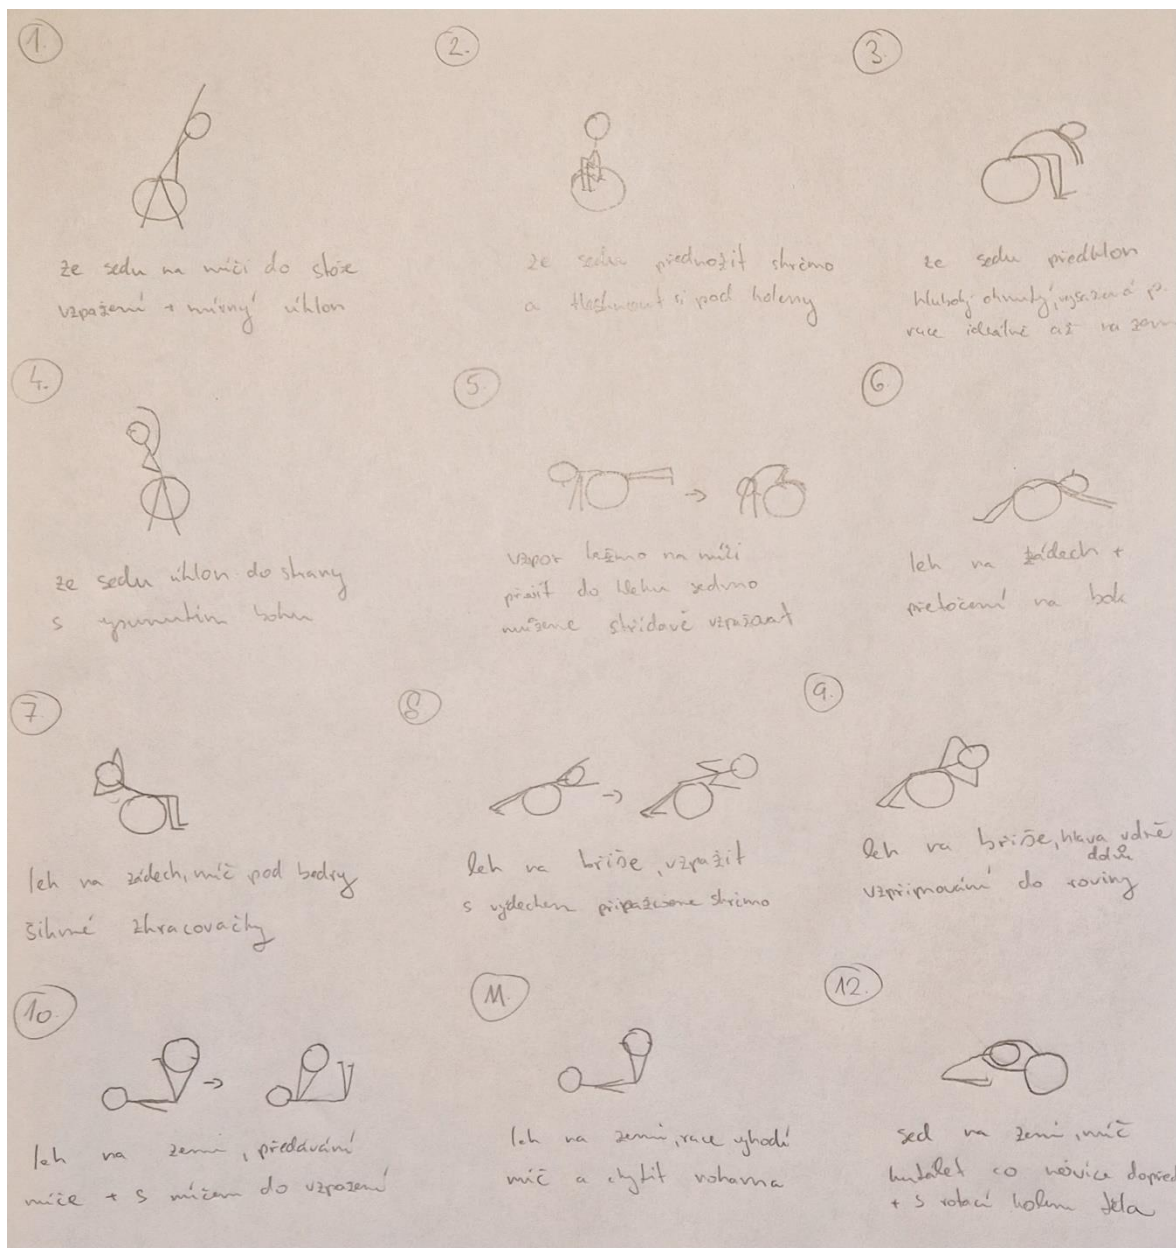 1.
ze sedu na míči do stoje
vzpažení + mírný úklon
2.
ze sedu přednožit skrčmo
a tlesknout si pod koleny
3.
ze sedu předklon
hluboký ohnutý, vysazená p.
ruce ideálně až na zem
4.
ze sedu úklon do strany
s vysunutím boku
5.
vzpor ležmo na míči
přejít do kleku sedmo
můžeme střídavě vzpažovat
6
leh na zádech +
přetočení na bok
7.
leh na zádech, míč pod bedry
šikmé zkracovačky
8
leh na břiše, vzpažit
s výdechem připažujeme skrčmo
9.
leh na břiše, hlava volně
dolů
vzpřimování do roviny
10.
leh na zemi, předávání
míče + s míčem do vzpažení
11.
leh na zemi, ruce vyhodí
míč a chytit nohama
12.
sed na zemi, míč
kutálet co nejvíce dopřed
+ s rotací kolem těla